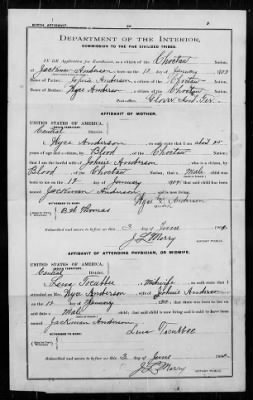 BIRTH AFFIDAVIT.
DEPARTMENT OF THE INTERIOR,
COMMISSION TO THE FIVE CIVILIZED TRIBES.
IN RE Application for Enrollment, as a citizen of the Choctaw Nation,
of Jackman Anderson, born on the 12 day of January, 190
Name of Father: Johnie Anderson, a citizen of the Choctaw Nation.
Name of Mother: Anderson, a citizen of the Choctaw Nation.
Post-office, Ind. Ter.
AFFIDAVIT OF MOTHER.
UNITED STATES OF AMERICA,
INDIAN TERRITORY,
Central District.
I, Anderson, on oath state that I am about
years of age and a citizen, by Blood, of the Choctaw Nation;
that I am the lawful wife of Johnie Anderson, who is a citizen, by
Blood, of the Choctaw Nation; that a Male child was
born to me on 12 day of January, 190 , that said child has been named
Jackman Anderson, and is now living.
Anderson
B. H. Thomas
Subscribed and sworn to before me this 3 day of June, 190
J L Merry
NOTARY PUBLIC.
AFFIDAVIT OF ATTENDING PHYSICIAN, OR MIDWIFE.
UNITED STATES OF AMERICA,
INDIAN TERRITORY,
Central District.
I, Lena, a midwife, on oath state that I
attended on Mrs. Anderson, wife of Johnie Anderson
on the 12 day of January, 190 ; that there was born to her on said
date a Male child; that said child is now living and is said to have been
named Jackman Anderson
Lena
Subscribed and sworn to before me this 3 day of June, 190
J L Merry
NOTARY PUBLIC.